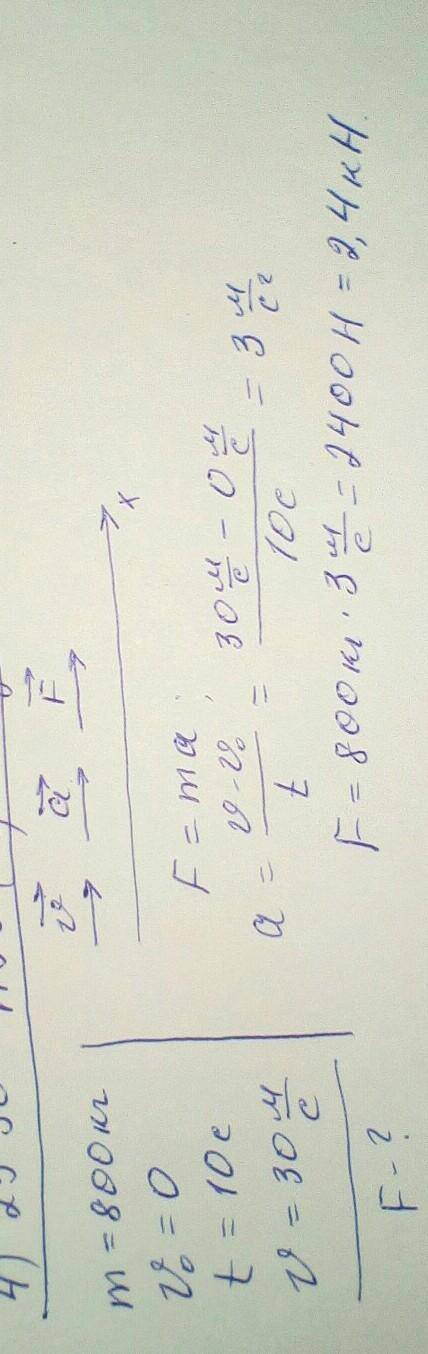 4)
m = 800 кг
v₀ = 0
t = 10 с
v = 30 м/с
F - ?
v⃗ a⃗ F⃗
x
F = ma;
a = (v - v₀)/t = (30 м/с - 0 м/с)/10 с = 3 м/с²
F = 800 кг · 3 м/с = 2400 Н = 2,4 кН.